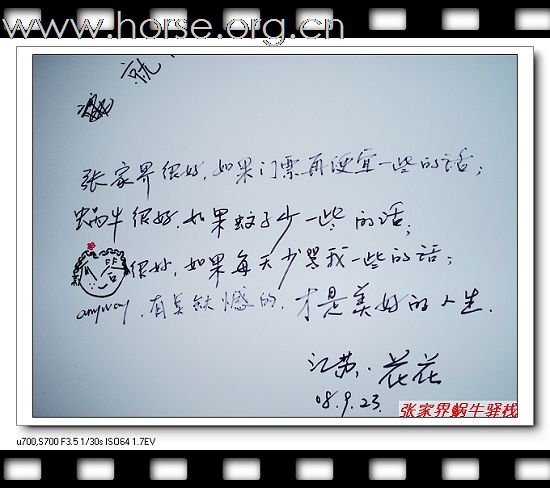 www.horse.org.cn
就
张家界很好，如果门票再便宜一些的话；
蜗牛很好，如果蚊子少一些的话；
很好，如果每天少骂我一些的话；
anyway，有点缺憾的，才是美好的人生．
江苏．花花
08.9.23.
张家界蜗牛驿栈
u700,S700 F3.5 1/30s ISO64 1.7EV